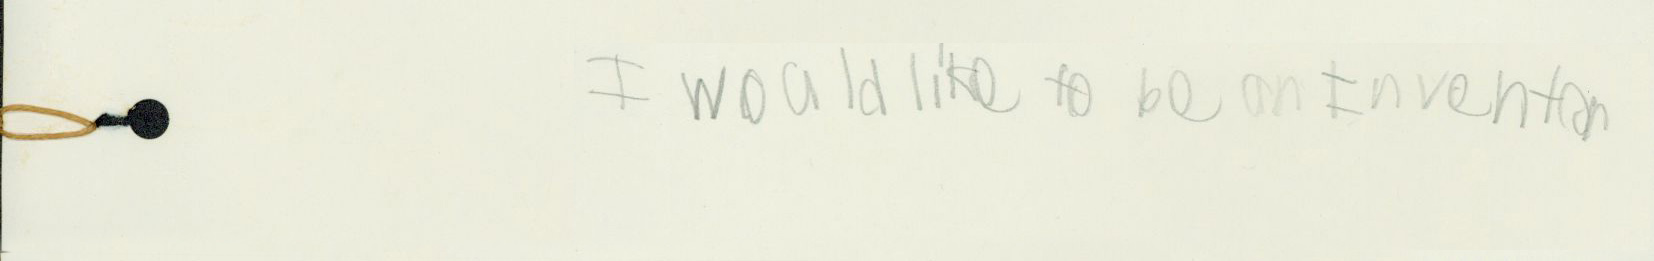 I would like to be an Inventor